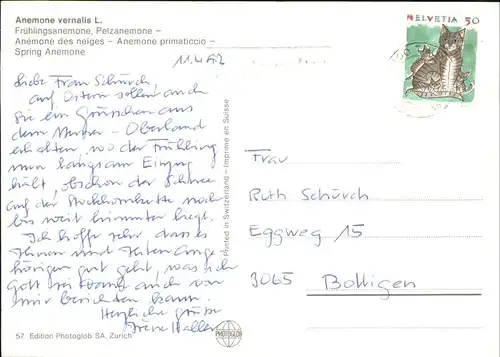 Anemone vernalis L.
Frühlingsanemone, Pelzanemone –
Anémone des neiges – Anemone primaticcio –
Spring Anemone
HELVETIA 50
Liebe Frau Schürch
auf Ostern sollen auch
Sie ein Grüsschen aus
dem Berner-Oberland
erhalten, wo der Frühling
nun langsam Einzug
hält, obschon der Schnee
auf der Stockhornkette noch
bis weit hinunter liegt.
Ich hoffe sehr dass es
Ihnen und Ihren Ange-
hörigen gut geht, was ich
Gott sei Dank auch von
mir berichten kann.
Herzliche Grüsse
Frau
Ruth Schürch
Eggweg 15
3065 Bolligen
Printed in Switzerland – Imprimé en Suisse
57 Edition Photoglob SA, Zurich
PHOTOGLOB